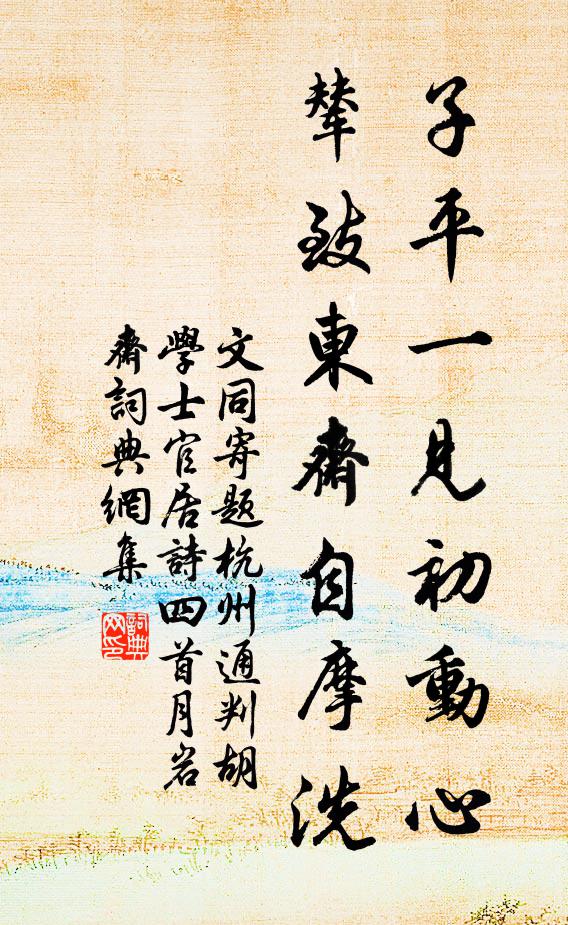 子平一見初動心
輦致東齋自摩洗
文同寄題杭州通判胡
學士官居詩四首月岩
齋詞典網集
詞典
网印